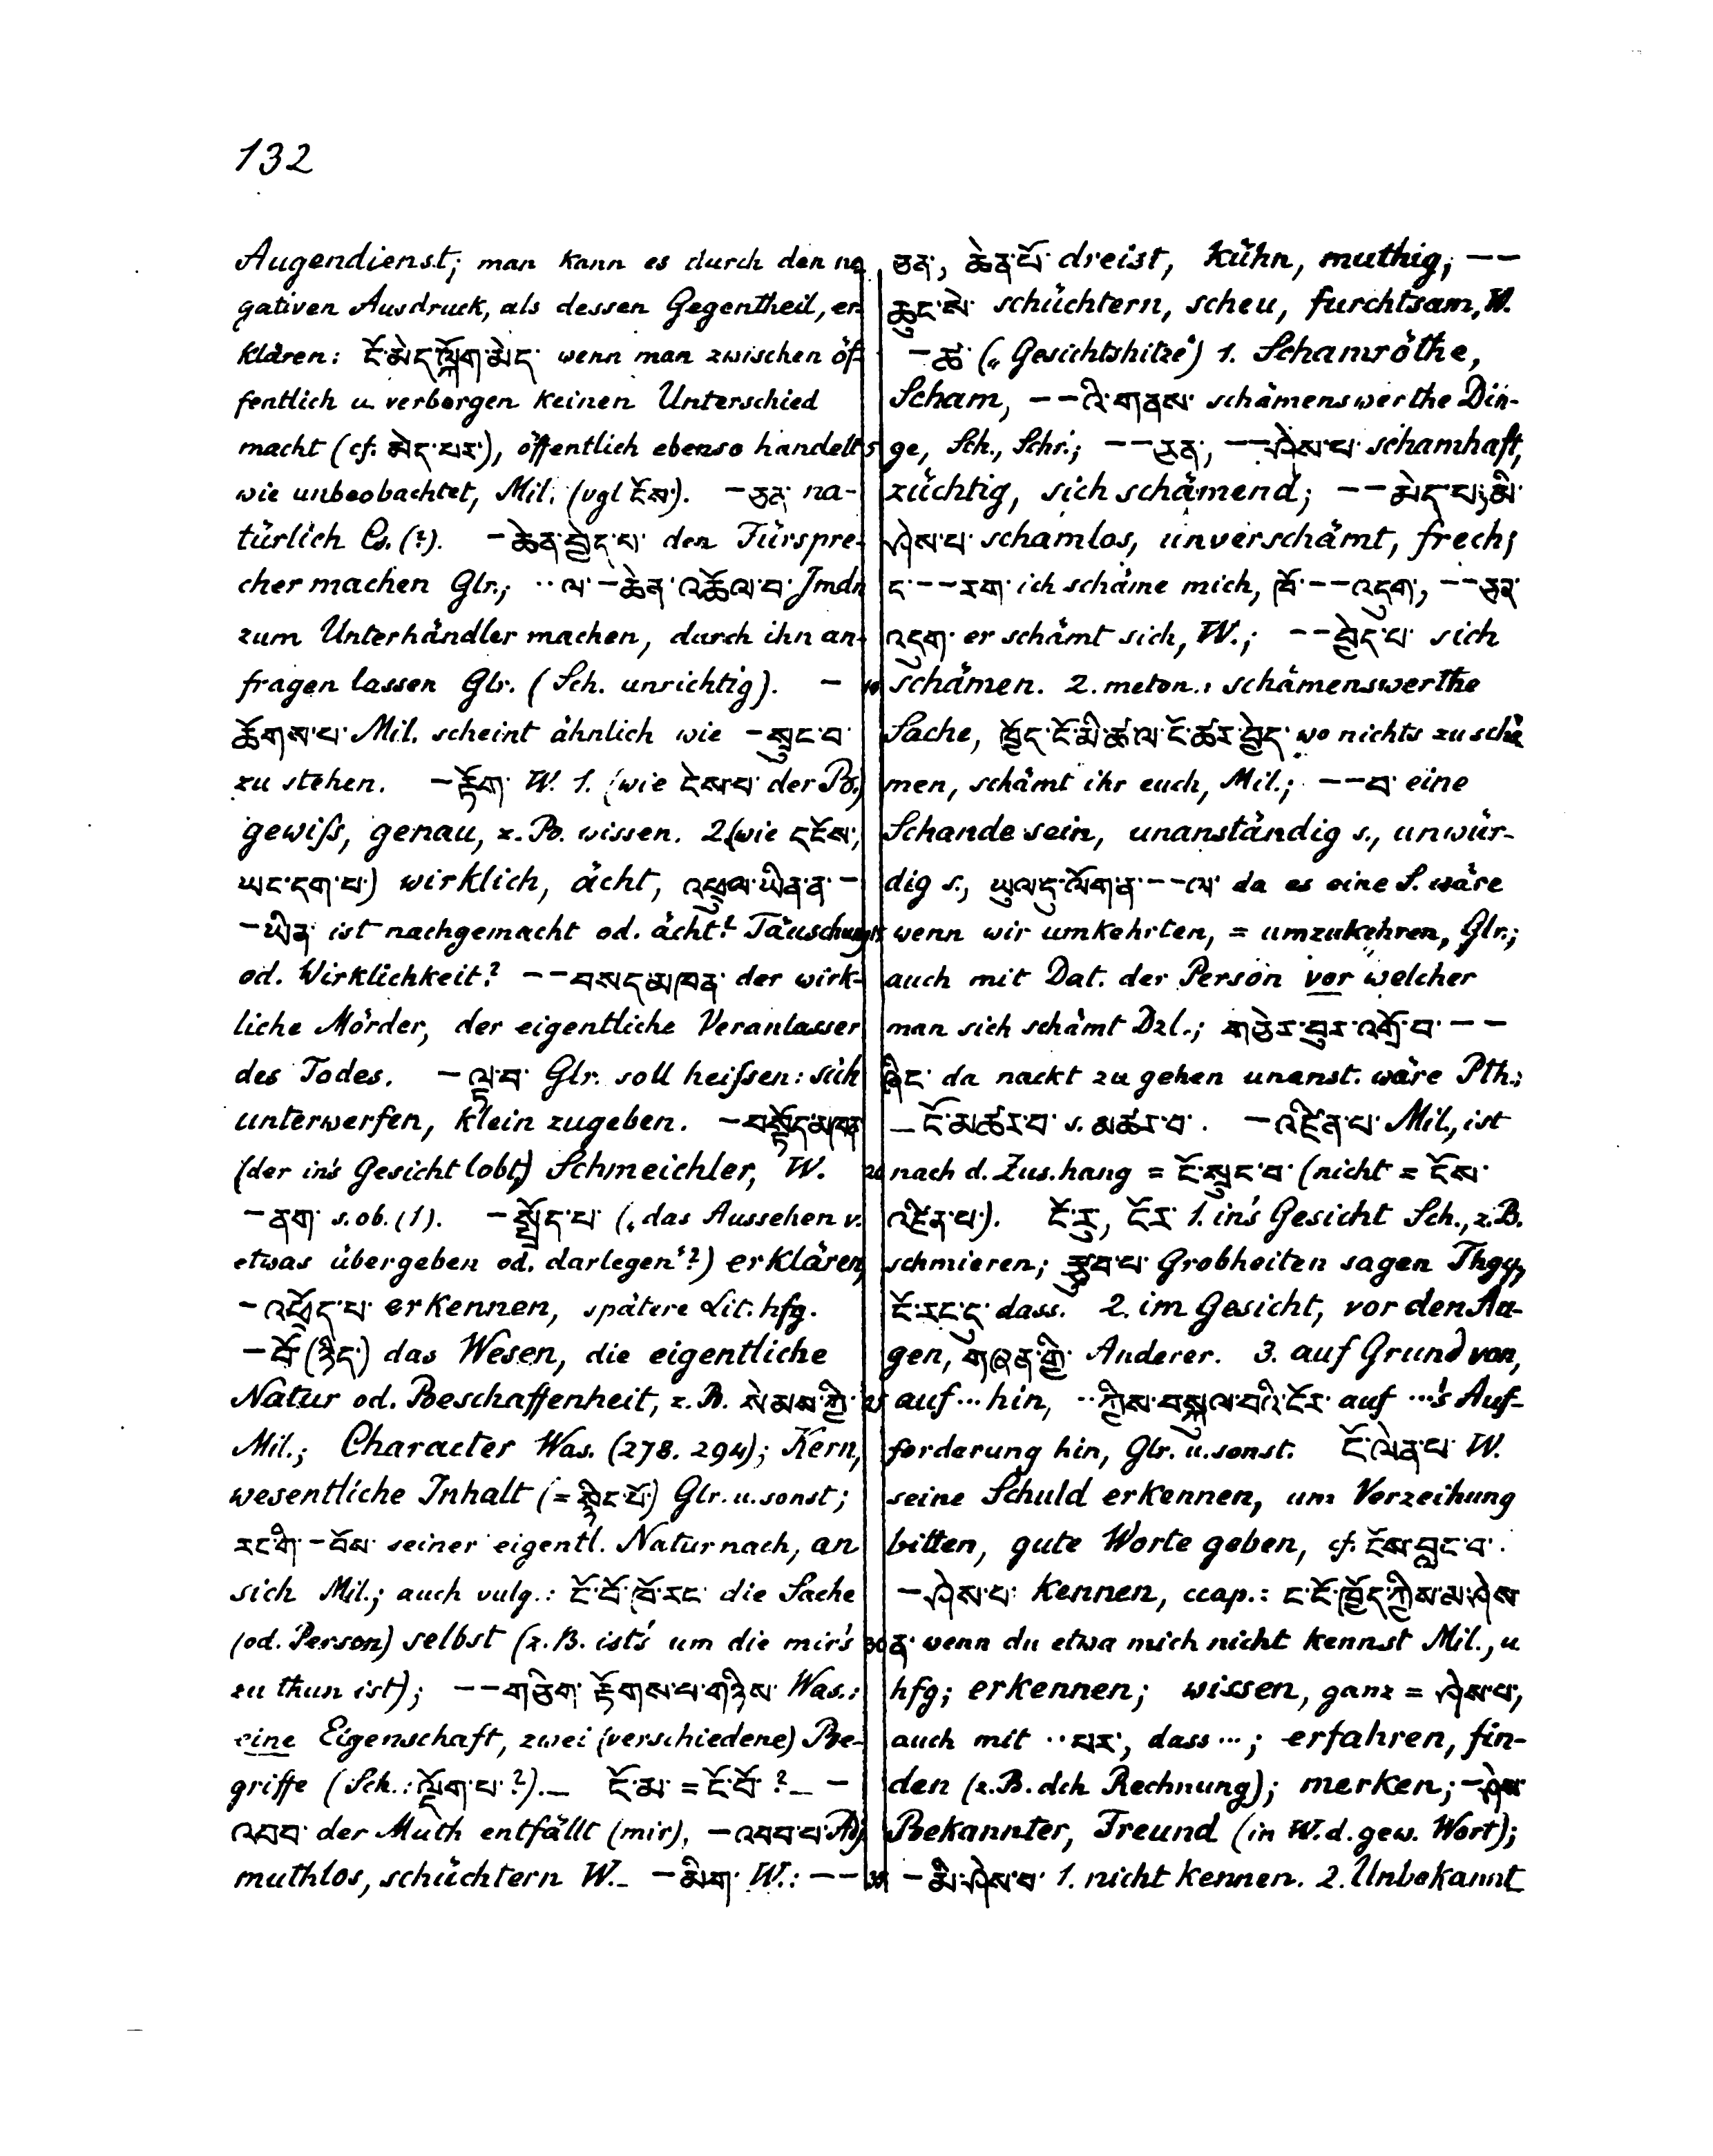 132
Augendienst; man kann es durch den ne
gativen Ausdruck, als dessen Gegentheil, er
klären: ངོ་མེད་ལྐོག་མེད་ wenn man zwischen öf-
fentlich u. verborgen keinen Unterschied
macht (cf. མེད་པར་), öffentlich ebenso handelt 5
wie unbeobachtet, Mil. (vgl ངོས་). – ཅན་ na-
türlich Cs. (?). – ཆེན་བྱེད་པ་ den Fürspre-
cher machen Glr.; ·· ལ་ – ཆེན་འཆོལ་བ་ Jmdn
zum Unterhändler machen, durch ihn an-
fragen lassen Glr. (Sch. unrichtig). – 10
ཆོགས་པ་ Mil. scheint ähnlich wie – སྲུང་བ་
zu stehen. – རྟོག་ W. 1. (wie ངེས་པ་ der Bü.)
gewiß, genau, z. B. wissen. 2. (wie དངོས་,
ཡང་དག་པ་) wirklich, ächt, འཕྲུལ་ཡིན་ན་ –
– ཡིན་ ist nachgemacht od. ächt? Täuschung 15
od. Wirklichkeit? – – བསད་མཁན་ der wirk-
liche Mörder, der eigentliche Veranlasser
des Todes. – ལྟ་བ་ Glr. soll heißen: sich
unterwerfen, klein zugeben. – བསྟོད་མཁན་
(der in's Gesicht lobt,) Schmeichler, W. 20
– ནག་ s. ob. (1). – སྤྲོད་པ་ („das Aussehen v.
etwas übergeben od. darlegen“?) erklären,
– འཕྲོད་པ་ erkennen, spätere Lit. hfg.
– བོ་ (ཉིད་) das Wesen, die eigentliche
Natur od. Beschaffenheit, z. B. སེམས་ཀྱི་ 25
Mil.; Character Was. (278. 294); Kern,
wesentliche Inhalt (= སྙིང་པོ་) Glr. u. sonst;
རང་གི་ – བོས་ seiner eigentl. Natur nach, an
sich Mil.; auch vulg.: ངོ་བོ་ཁོ་རང་ die Sache
(od. Person) selbst (z. B. ist's um die mir's 30
zu thun ist); – – གཅིག་ རྟོགས་པ་གཉིས་ Was.:
eine Eigenschaft, zwei (verschiedene) Be-
griffe (Sch.: ལྡོག་པ་ ?). – ངོ་མ་ = ངོ་བོ་ ? – –
འབབ་ der Muth entfällt (mir), – འབབ་པ་ Adj
muthlos, schüchtern W. – – མིག་ W.: – – 35
ཅན་, ཆེན་པོ་ dreist, kühn, muthig; – –
ཆུང་སེ་ schüchtern, scheu, furchtsam, W.
– ཚ་ („Gesichtshitze“) 1. Schamröthe,
Scham, – – འི་གནས་ schämenswerthe Din-
ge, Sch., Schr.; – – ཅན་, – – ཤེས་པ་ schamhaft,
züchtig, sich schämend; – – མེད་པ་; མི་
ཤེས་པ་ schamlos, unverschämt, frech;
ང་ – – རག་ ich schäme mich, ཁོ་ – – འདུག་, – – ཅན་
འདུག་ er schämt sich, W.; – – བྱེད་པ་ sich
schämen. 2. meton.: schämenswerthe
Sache, ཁྱོད་ངོ་མི་ཚ་ལ་ངོ་ཚར་བྱེད་ wo nichts zu schä
men, schämt ihr euch, Mil.; – – བ་ eine
Schande sein, unanständig s., unwür-
dig s., ཡུལ་དུ་ལོག་ན་ – – ལ་ da es eine S. wäre
wenn wir umkehrten, = umzukehren, Glr.;
auch mit Dat. der Person vor welcher
man sich schämt Dzl.; གཅེར་བུར་འགྲོ་བ་ – –
ཞིང་ da nackt zu gehen unanst. wäre Pth.;
– ངོ་མཚར་བ་ s. མཚར་བ་. – འཛིན་པ་ Mil., ist
nach d. Zus.hang = ངོ་སྲུང་བ་ (nicht = ངོས་
འཛིན་པ་). ངོ་རུ་, ངོར་ 1. in's Gesicht Sch., z. B.
schmieren; རྩུབ་པ་ Grobheiten sagen Thgy,
ངོ་རང་དུ་ dass. 2. im Gesicht, vor den Au-
gen, གཞན་གྱི་ Anderer. 3. auf Grund von,
auf ··· hin, ·· ཀྱིས་བསྐུལ་བའི་ངོར་ auf ···'s Auf-
forderung hin, Glr. u. sonst. ངོ་ལེན་པ་ W.
seine Schuld erkennen, um Verzeihung
bitten, gute Worte geben, cf. ངོས་བླང་བ་.
– ཤེས་པ་ kennen, ccap.: ང་ངོ་ཁྱོད་ཀྱིས་མ་ཤེས་
ན་ wenn du etwa mich nicht kennst Mil., u
hfg; erkennen; wissen, ganz = ཤེས་པ་,
auch mit ·· པར་, dass ···; erfahren, fin-
den (z. B. dch Rechnung); merken; – ཤེས་
Bekannter, Freund (in W. d. gew. Wort);
– མི་ཤེས་པ་ 1. nicht kennen. 2. Unbekannt